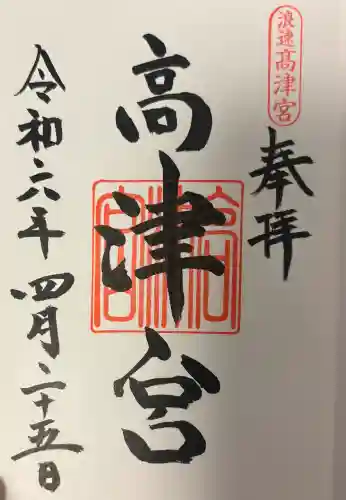 浪速高津宮
奉拝
高津宮
高津宮
令和六年四月二十五日